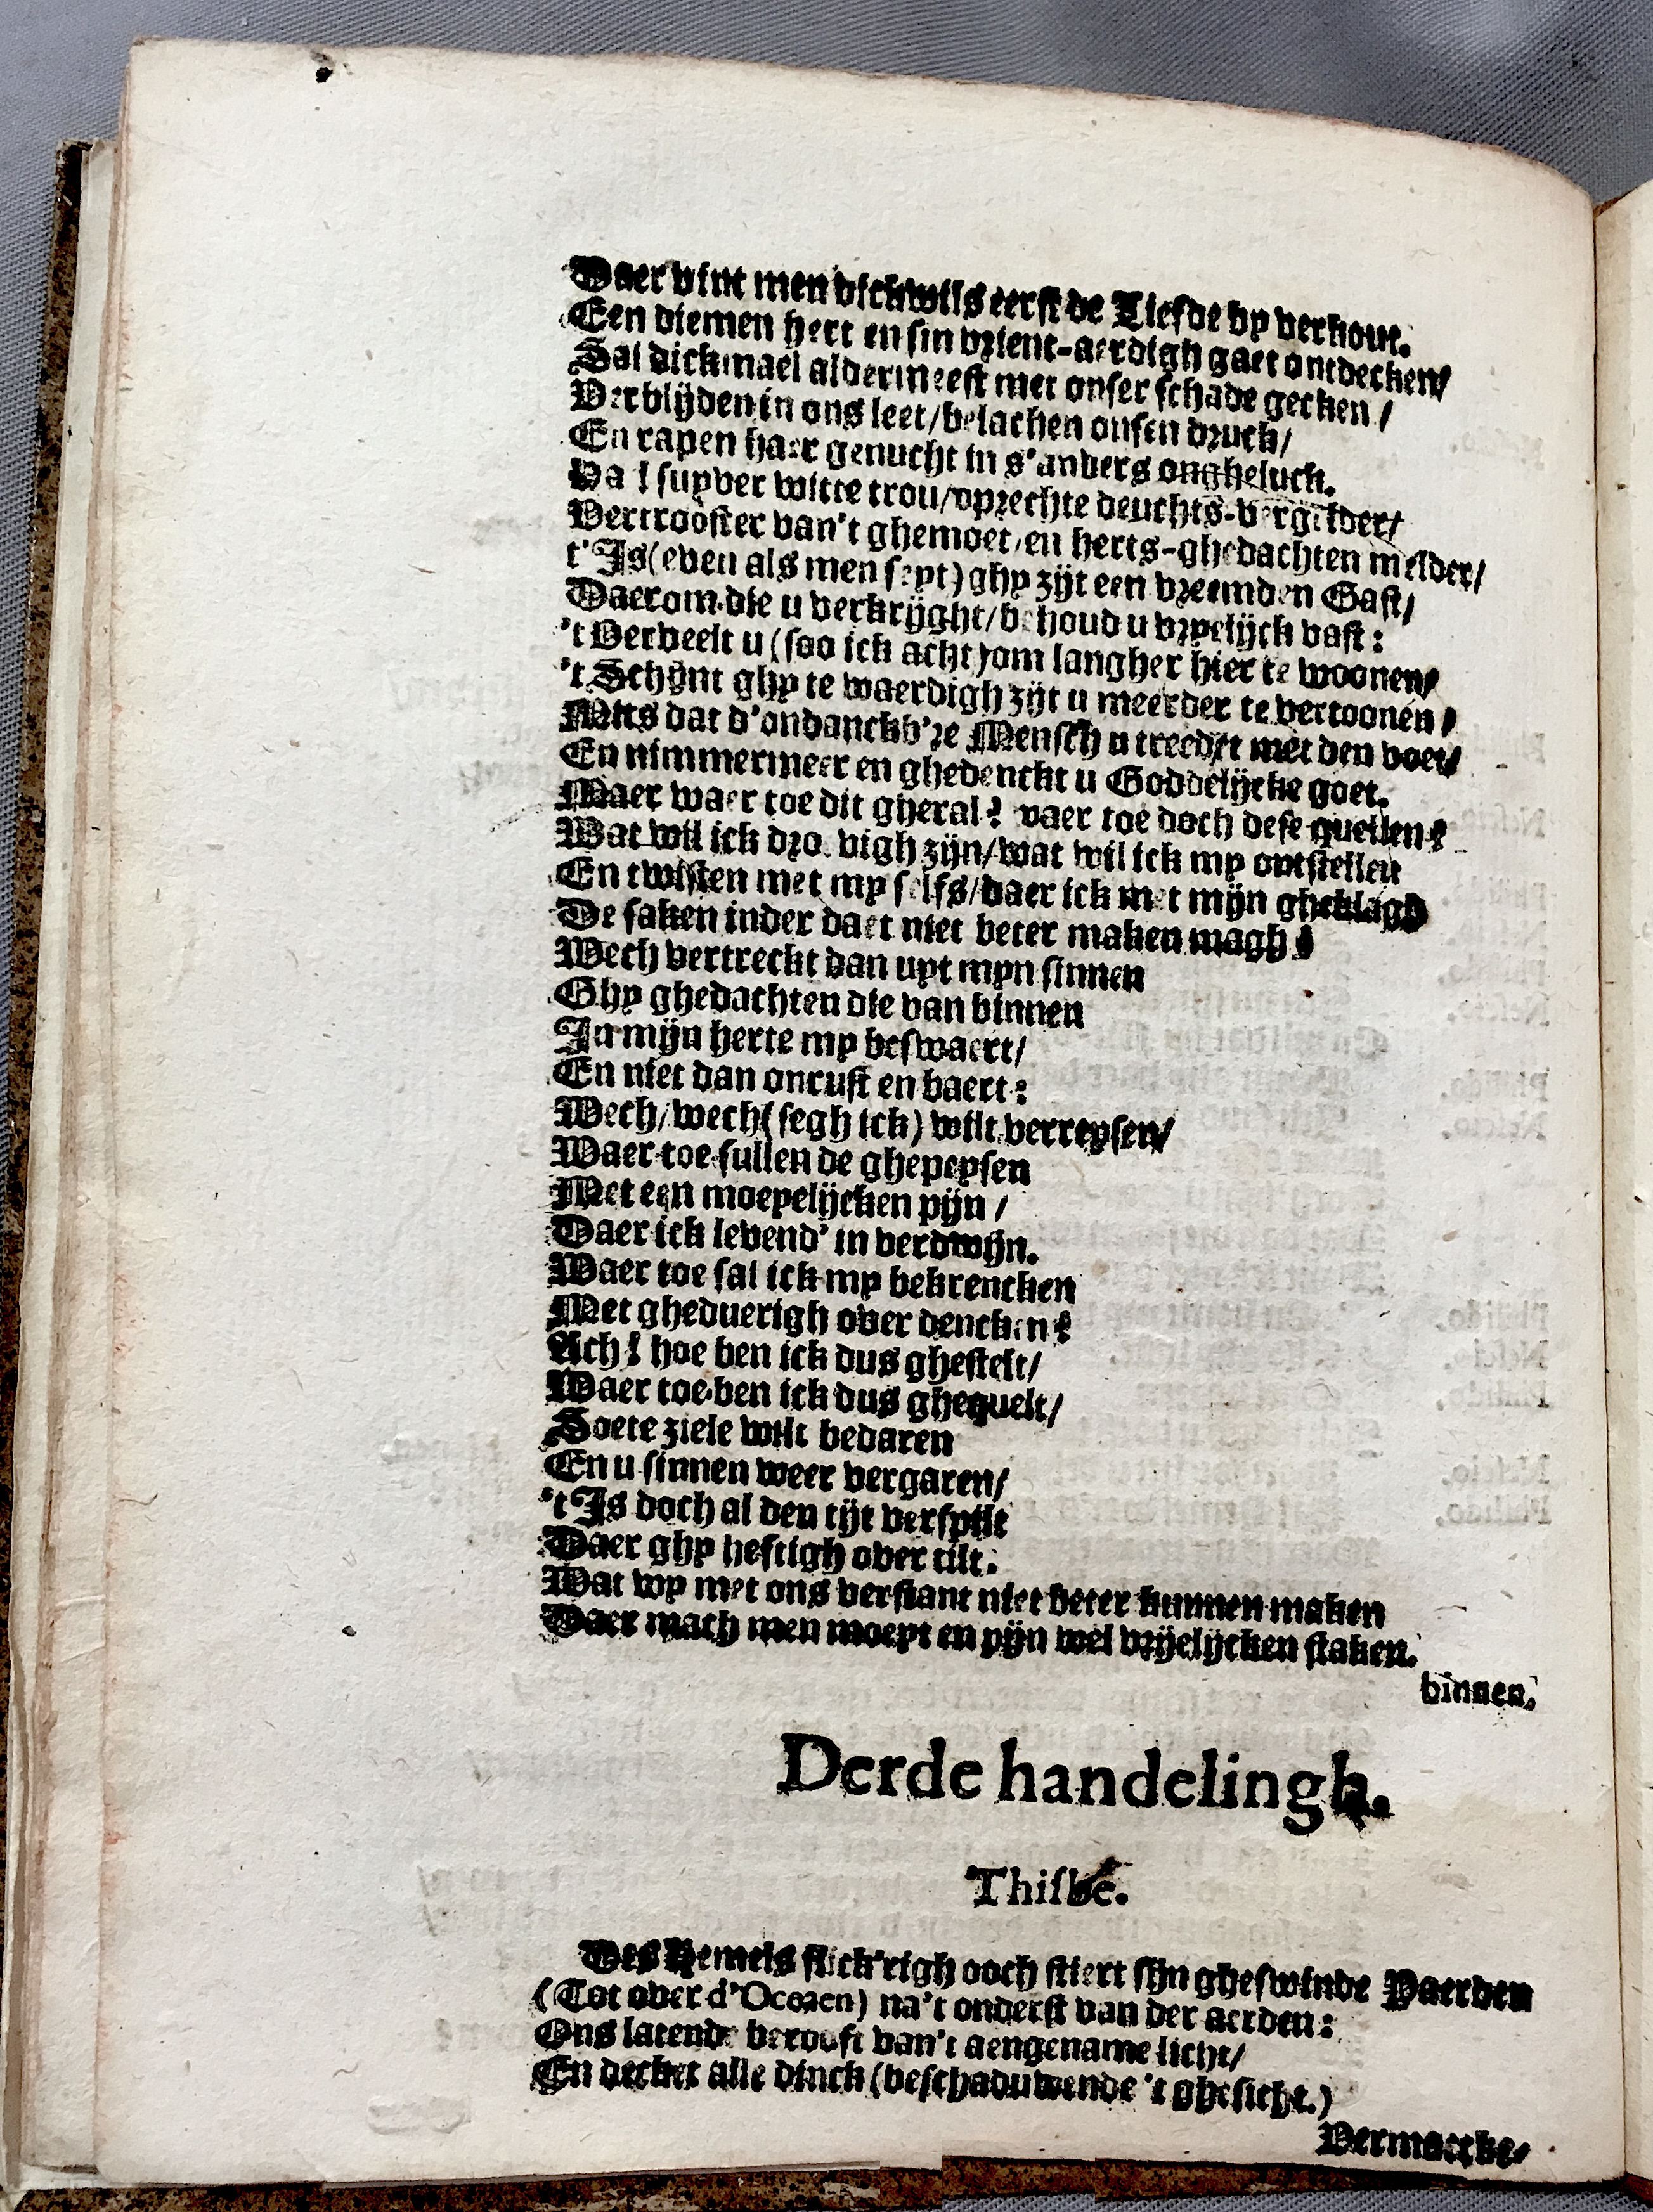 Daer vint men dickwils eerst de Liefde by verkout.
Een diemen hert en sin vrient-aerdigh gaet ontdecken/
Sal dickmael aldermeest met onser schade gecken/
Verblijden in ons leet/belachen onsen druck/
En rapen haer genucht in s'anders ongheluck.
Ha! suyver witte trou/oprechte deuchts-vergelder/
Vertrooster van't ghemoet/en herts-ghedachten melder/
t'Is (even als men seyt) ghy zijt een vreemden Gast/
Daerom die u verkrijght/behoud u vryelijck vast:
't Verveelt u (soo ick acht) om langher hier te woonen/
't Schijnt ghy te waerdigh zijt u meerder te vertoonen/
Mits dat d'ondanckb're Mensch u treedet met den voet/
En nimmermeer en ghedenckt u Goddelijcke goet.
Maer waer toe dit gheral? waer toe doch dese quellen?
Wat wil ick droevigh zijn/wat wil ick my ontstellen
En twisten met my selfs/daer ick met mijn gheklagh
De saken inder daet niet beter maken magh?
Wech vertreckt dan uyt myn sinnen
Ghy ghedachten die van binnen
In mijn herte my beswaert/
En niet dan onrust en baert:
Wech/wech (segh ick) wilt verreysen/
Waer toe sullen de ghepeysen
Met een moeyelijcken pijn/
Daer ick levend' in verdwijn.
Waer toe sal ick my bekrencken
Met gheduerigh over dencken?
Ach! hoe ben ick dus ghestelt/
Waer toe ben ick dus ghequelt/
Soete ziele wilt bedaren
En u sinnen weer vergaren/
't Is doch al den tijt verspilt
Daer ghy heftigh over tilt.
Wat wy met ons verstant niet beter kunnen maken
Daer mach men moeyt en pijn wel vrijelijcken staken.
binnen.
Derde handelingh.
Thisbe.
Des Hemels flick'righ ooch stiert sijn gheswinde Paerden
(Tot over d'Oceaen) na't onderst van der aerden:
Ons latende berooft van't aengename licht/
En decket alle dinck (beschaduwende 't ghesicht.)
Vermaecke-